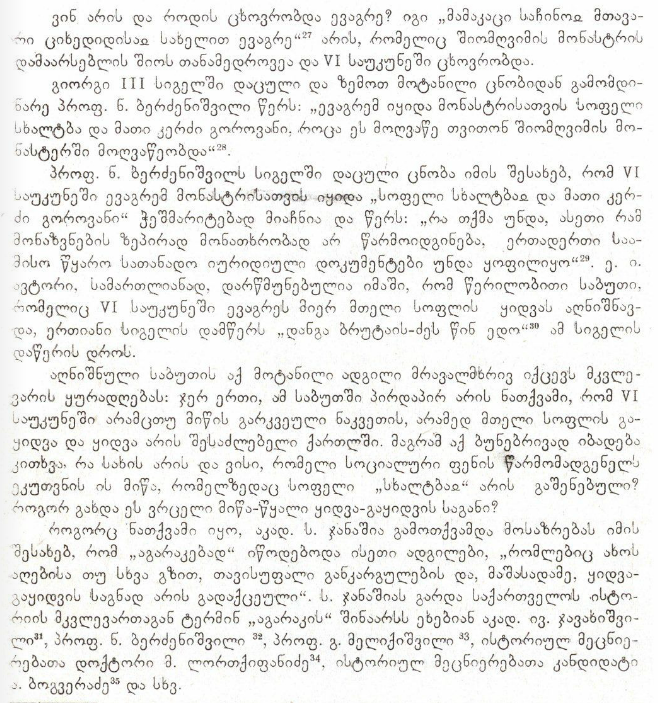 ვინ არის და როდის ცხოვრობდა ევაგრე? იგი „მამაკაცი საჩინოჲ მთავა-
რი ციხედიდისაჲ სახელით ევაგრე“²⁷ არის, რომელიც შიომღვიმის მონასტრის
დამაარსებლის შიოს თანამედროვეა და VI საუკუნეში ცხოვრობდა.
გიორგი III სიგელში დაცული და ზემოთ მოტანილი ცნობიდან გამომდი-
ნარე პროფ. ნ. ბერძენიშვილი წერს: „ევაგრემ იყიდა მონასტრისათვის სოფელი
სხალტბა და მათი კერძი გოროვანი, როცა ეს მოღვაწე თვითონ შიომღვიმის მო-
ნასტერში მოღვაწეობდა“²⁸.
პროფ. ნ. ბერძენიშვილს სიგელში დაცული ცნობა იმის შესახებ, რომ VI
საუკუნეში ევაგრემ მონასტრისათვის იყიდა „სოფელი სხალტბაჲ და მათი კერ-
ძი გოროვანი“ ჭეშმარიტებად მიაჩნია და წერს: „რა თქმა უნდა, ასეთი რამ
მონაზვნების ზეპირად მონათხრობად არ წარმოიდგინება, ერთადერთი საა-
მისო წყარო სათანადო იურიდიული დოკუმენტები უნდა ყოფილიყო“²⁹. ე. ი.
ავტორი, სამართლიანად, დარწმუნებულია იმაში, რომ წერილობითი საბუთი,
რომელიც VI საუკუნეში ევაგრეს მიერ მთელი სოფლის ყიდვას აღნიშნავ-
და, ერთიანი სიგელის დამწერს „დანგა ბრუტაის-ძეს წინ ედო“³⁰ ამ სიგელის
დაწერის დროს.
აღნიშნული საბუთის აქ მოტანილი ადგილი მრავალმხრივ იქცევს მკვლე-
ვარის ყურადღებას: ჯერ ერთი, ამ საბუთში პირდაპირ არის ნათქვამი, რომ VI
საუკუნეში არამცთუ მიწის გარკვეული ნაკვეთის, არამედ მთელი სოფლის გა-
ყიდვა და ყიდვა არის შესაძლებელი ქართლში. მაგრამ აქ ბუნებრივად იბადება
კითხვა, რა სახის არის და ვისი, რომელი სოციალური ფენის წარმომადგენელს
ეკუთვნის ის მიწა, რომელზედაც სოფელი „სხალტბაჲ“ არის გაშენებული?
როგორ გახდა ეს ვრცელი მიწა-წყალი ყიდვა-გაყიდვის საგანი?
როგორც ნათქვამი იყო, აკად. ს. ჯანაშია გამოთქვამდა მოსაზრებას იმის
შესახებ, რომ „აგარაკებად“ იწოდებოდა ისეთი ადგილები, „რომლებიც ახოს
აღებისა თუ სხვა გზით, თავისუფალი განკარგულების და, მაშასადამე, ყიდვა-
გაყიდვის საგნად არის გადაქცეული“. ს. ჯანაშიას გარდა საქართველოს ისტო-
რიის მკვლევართაგან ტერმინ „აგარაკის“ შინაარსს ეხებიან აკად. ივ. ჯავახიშვი-
ლი³¹, პროფ. ნ. ბერძენიშვილი ³², პროფ. გ. მელიქიშვილი ³³, ისტორიულ მეცნიე-
რებათა დოქტორი მ. ლორთქიფანიძე³⁴, ისტორიულ მეცნიერებათა კანდიდატი
ა. ბოგვერაძე³⁵ და სხვ.